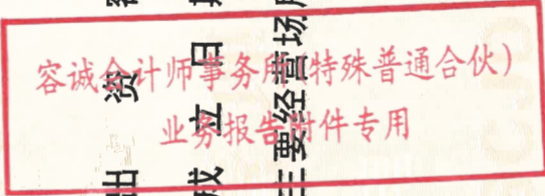 容诚会计师事务所(特殊普通合伙)
业务报告附件专用
出资
成立日
主要经营场所